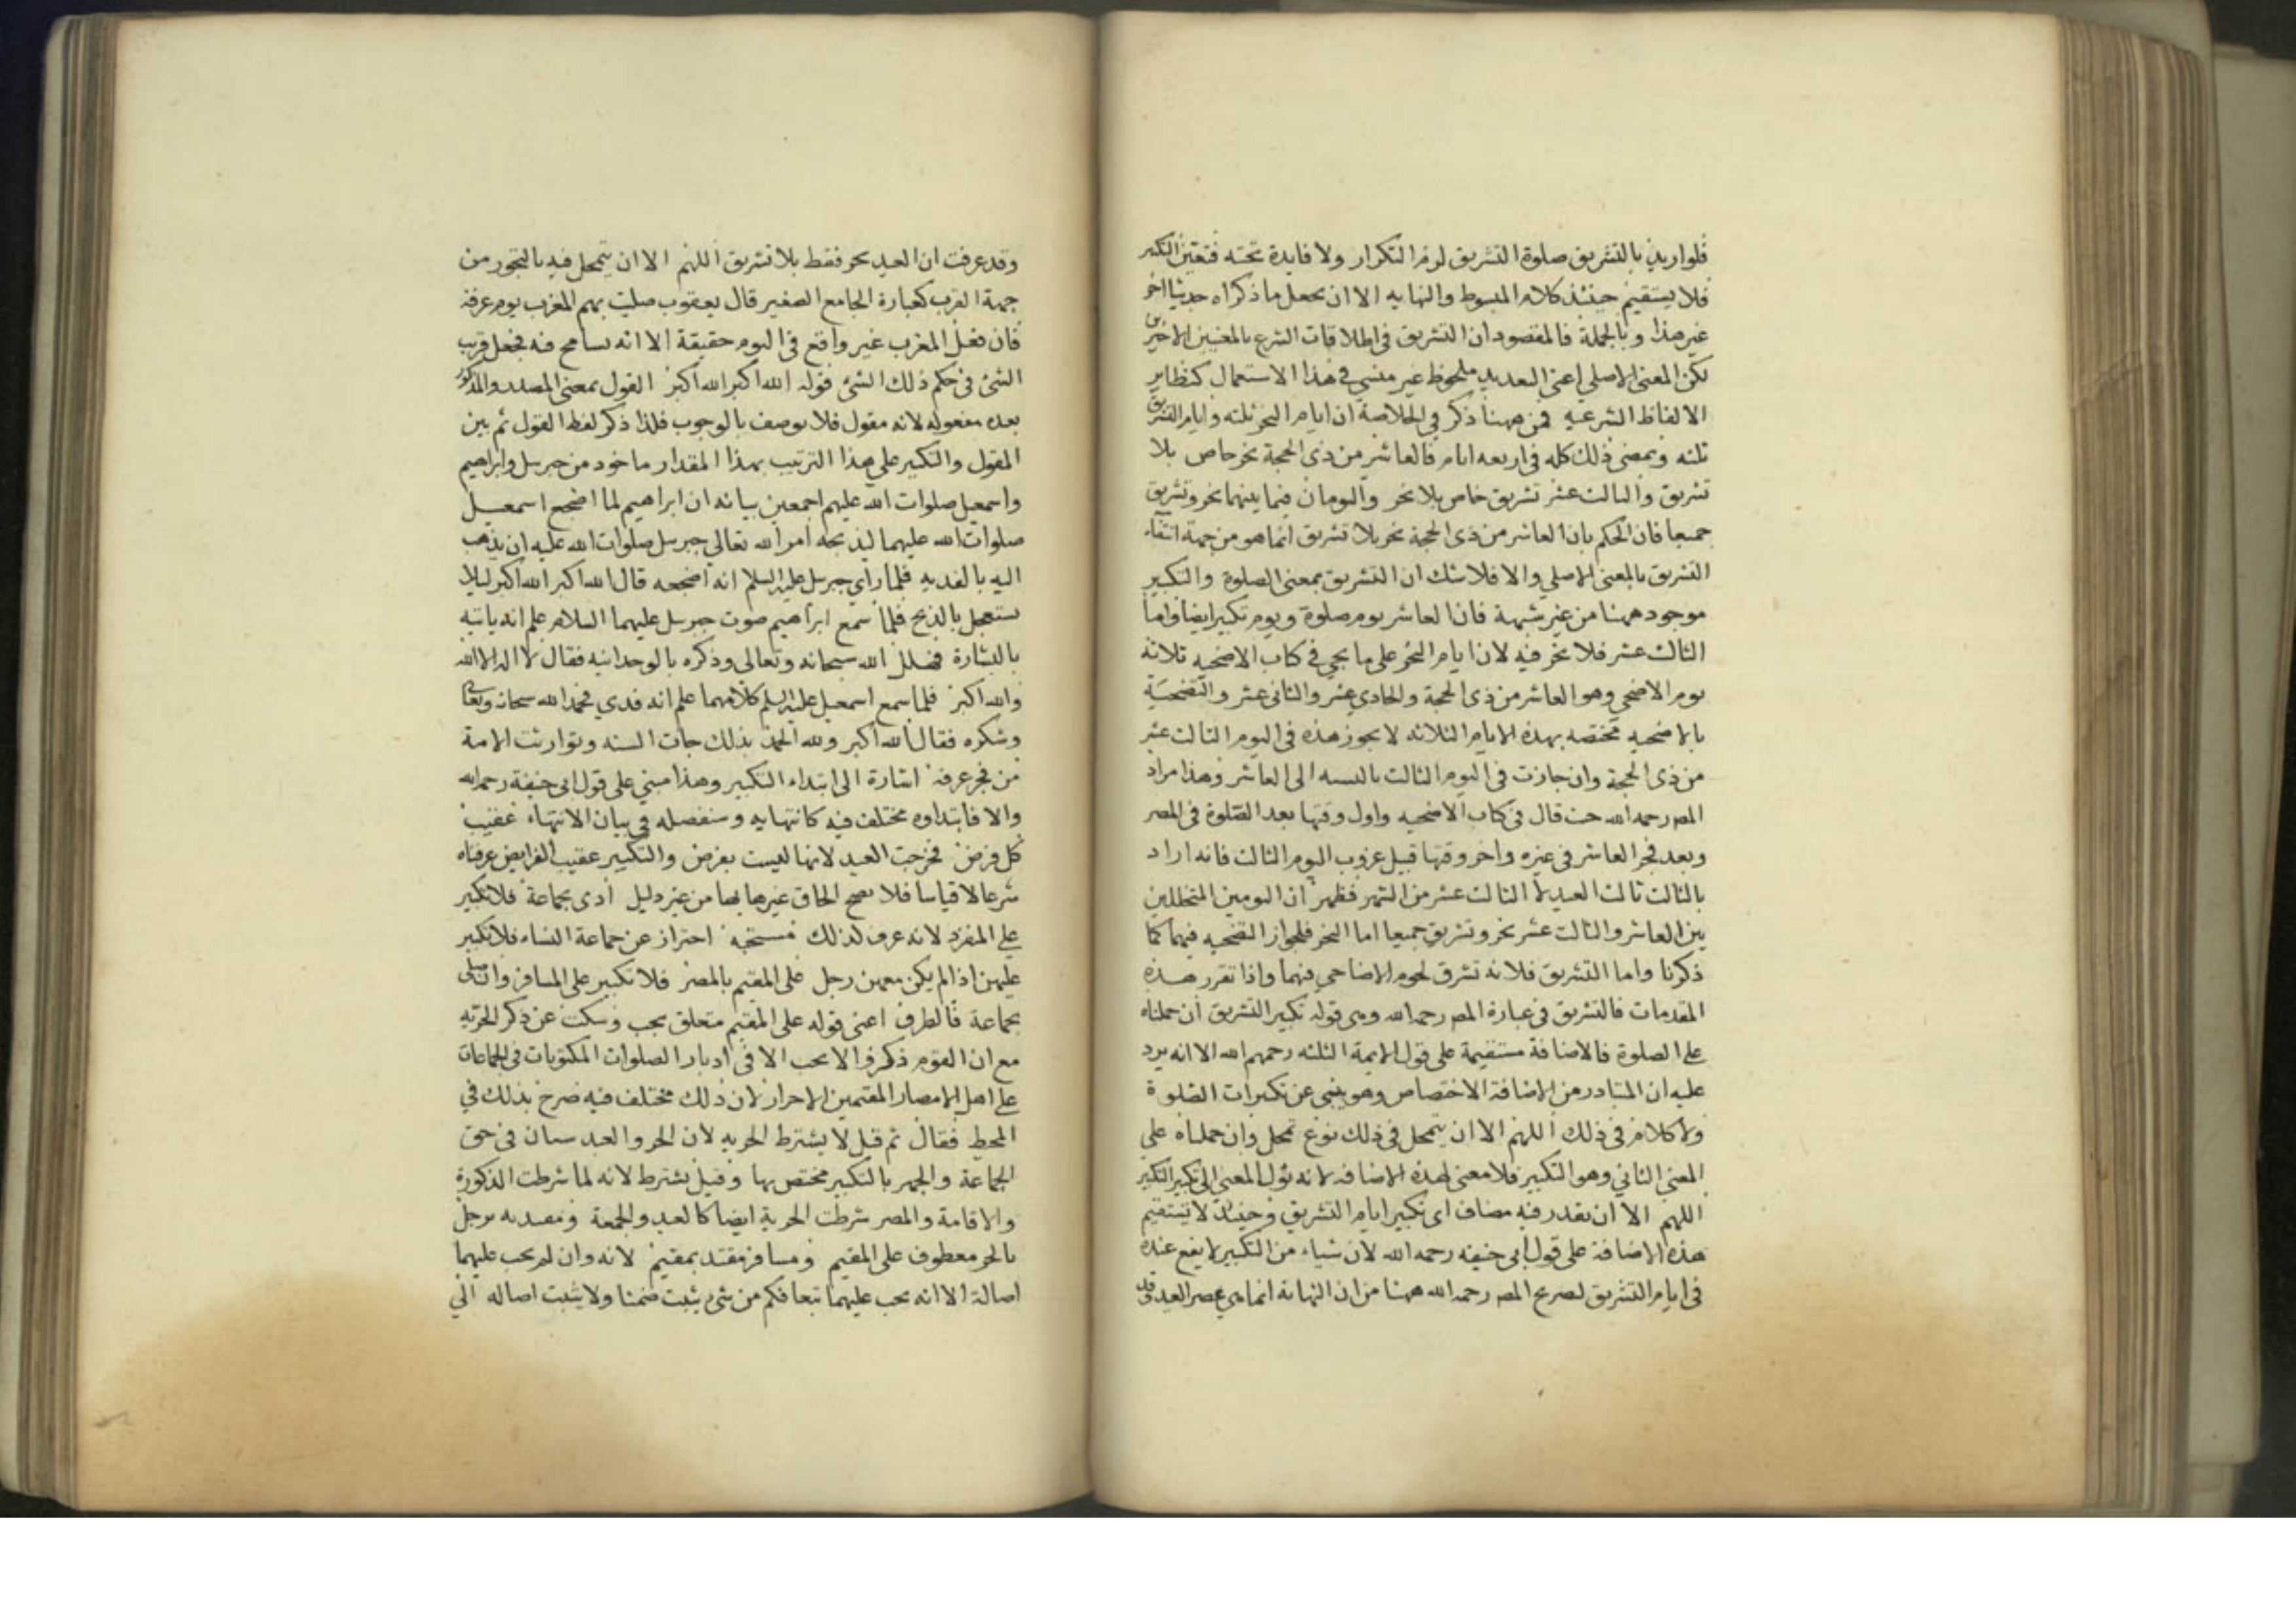 فلو اريد بالتشريق صلوة التشريق لزم التكرار ولا فايدة تحته فتعين التكبير
فلا يستقيم حينئذ كلام المبسوط والنهايه الا ان يحعل ما ذكراه حديثا اخر
غير هذا وبالجملة فالمقصود ان التشريق فى اطلاقات الشرع بالمعنيين الاخيرين
لكن المعنى الاصلي اعنى التعديد ملحوظ غير منسي فى هذا الاستعمال كنظاير
الالفاظ الشرعيه فمن ههنا ذكر فى الخلاصة ان ايام النحر ثلثه وايام التشريق
ثلثه ويمضى ذلك كله فى اربعه ايام فالعاشر من ذى الحجة نحر خاص بلا
تشريق والثالث عشر تشريق خاص بلا نحر واليومان فيما بينهما نحر وتشريق
جميعا فان الحكم بان العاشر من ذى الحجة نحر بلا تشريق انما هو من جهة انتفاء
التشريق بالمعنى الاصلي والا فلا شك ان التشريق بمعنى الصلوة والتكبير
موجود ههنا من غير شبهة فان العاشر يوم صلوة ويوم تكبير ايضا واما
الثالث عشر فلا نحر فيه لان ايام النحر على ما يجي فى كتاب الاضحيه ثلاثة
يوم الاضحى وهو العاشر من ذى الحجة والحادي عشر والثانى عشر والتضحية
بالاضحيه مختصه بهذه الايام الثلاثه لا يجوز هذه فى اليوم الثالث عشر
من ذى الحجة وان جازت فى اليوم الثالث بالنسبه الى العاشر وهذا مراد
المص رحمه الله حيث قال فى كتاب الاضحيه واول وقتها بعد الصلوة فى المصر
وبعد فجر العاشر فى غيره واخر وقتها قبيل غروب اليوم الثالث فانه اراد
بالثالث ثالث العيد لا الثالث عشر من الشهر فظهر ان اليومين المتخللين
بين العاشر والثالث عشر نحر وتشريق جميعا اما النحر فلجواز التضحيه فيهما كما
ذكرنا واما التشريق فلانه تشرق لحوم الاضاحي فيهما واذا تقرر هذه
المقدمات فالتشريق فى عبارة المص رحمه الله وهى قوله تكبير التشريق ان حملناه
على الصلوة فالاضافة مستقيمة على قول الايمة الثلثه رحمهم الله الا انه يرد
عليه ان المتبادر من الاضافة الاختصاص وهو ينبى عن تكبيرات الصلوة
ولا كلام فى ذلك اللهم الا ان يتمحل فى ذلك نوع تمحل وان حملناه على
المعنى الثاني وهو التكبير فلا معنى لهذه الاضافه لانه يؤل المعنى الى تكبير التكبير
اللهم الا ان يقدر فيه مضاف اى تكبير ايام التشريق وحينئذ لا يستقيم
هذه الاضافة على قول ابى حنيفه رحمه الله لان شياء من التكبير لا يقع عنده
فى ايام التشريق لصريح المص رحمه الله ههنا من ان النهاية انما هي عصر العيد
وقد عرفت ان العيد نحر فقط بلا تشريق اللهم الا ان يتمحل فيه بالتجوز من
جهة القرب كعبارة الجامع الصغير قال يعقوب صليت بهم المغرب يوم عرفة
فان فعل المغرب غير واقع فى اليوم حقيقة الا انه يسامح فيه فجعل قريب
الشئ فى حكم ذلك الشئ قوله الله اكبر الله اكبر القول بمعنى المصدر والمذكور
بعده مفعوله لانه مقول فلا يوصف بالوجوب فلذا ذكر لفظ القول ثم بين
المقول والتكبير على هذا الترتيب بهذا المقدار ماخود من جبريل وابراهيم
واسمعيل صلوات الله عليهم اجمعين بيانه ان ابراهيم لما اضجع اسمعيل
صلوات الله عليهما ليذبحه امر الله تعالى جبريل صلوات الله عليه ان يذهب
اليه بالفديه فلما راي جبريل عليه السلم انه اضجعه قال الله اكبر الله اكبر ليلا
يستعجل بالذبح فلما سمع ابراهيم صوت جبريل عليهما السلام علم انه ياتيه
بالبشارة فهلل الله سبحانه وتعالى وذكره بالوحدانيه فقال لا اله الا الله
والله اكبر فلما سمع اسمعيل عليه السلم كلامهما علم انه فدي فحمد الله سبحانه وتعالى
وشكره فقال الله اكبر ولله الحمد بذلك جات السنه وتوارثت الامة
من فجر عرفة اشارة الى ابتداء التكبير وهذا مبني على قول ابى حنيفة رحمه الله
والا فابتداوه مختلف فيه كانتهايه وسنفصله فى بيان الانتهاء عقيب
كل فرض فخرجت العيد لانها ليست بفرض والتكبير عقيب الفرايض عرفناه
شرعا لا قياسا فلا يصح الحاق غيرها بها من غير دليل ادى بجماعة فلا تكبير
على المنفرد لانه عرف كذلك مستحبه احتراز عن جماعة النساء فلا تكبير
عليهن اذا لم يكن معهن رجل على المقيم بالمصر فلا تكبير على المسافر وان صلى
بجماعة فالظرف اعنى قوله على المقيم متعلق بجب وسكت عن ذكر الحريه
مع ان القوم ذكروا لا يحب الا فى ادبار الصلوات المكتوبات فى الجماعات
على اهل الامصار المقيمين الاحرار لان ذلك مختلف فيه صرح بذلك فى
المحيط فقال ثم قيل لا يشترط الحريه لان الحر والعبد سيان فى حق
الجماعة والجهر بالتكبير مختص بها وقيل يشترط لانه لما شرطت الذكورة
والاقامة والمصر شرطت الحرية ايضا كالعيد والجمعة ومقتديه برجل
بالجر معطوف على المقيم ومسافر مقتد بمقيم لانه وان لم يحب عليهما
اصالة الا انه يحب عليهما تبعا فكم من شئ يثبت ضمنا ولا يثبت اصاله الى